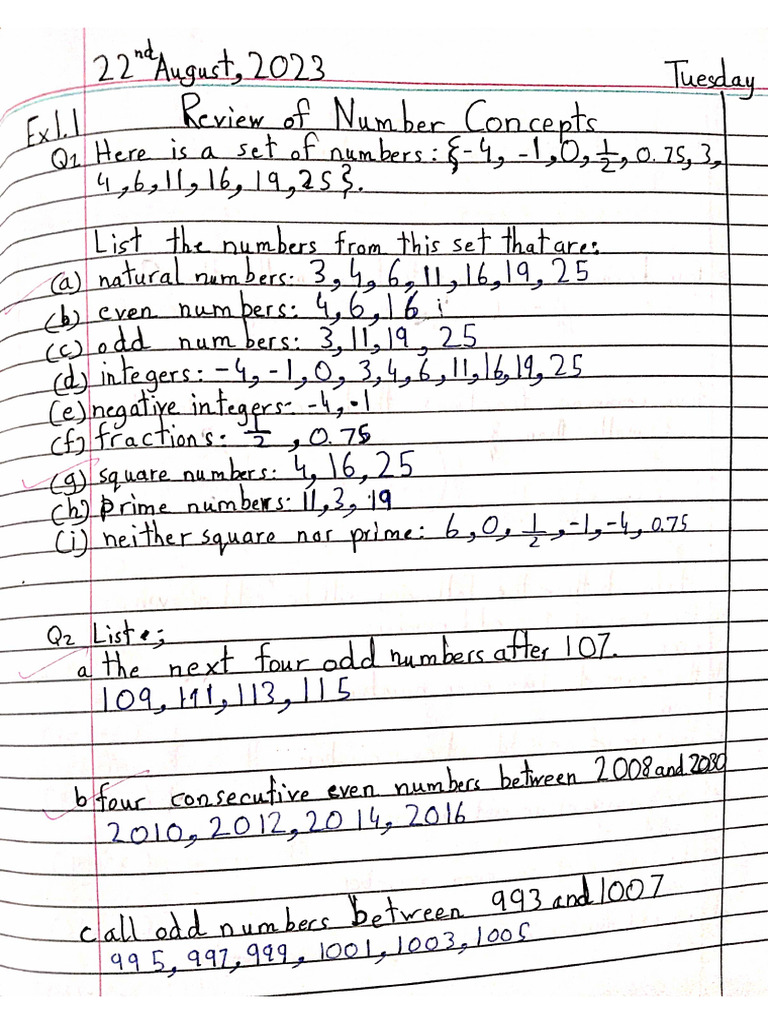 22nd August, 2023 Tuesday
Ex1.1 Review of Number Concepts
Q1 Here is a set of numbers: {-4, -1, 0, 1/2, 0.75, 3,
4, 6, 11, 16, 19, 25}.
List the numbers from this set that are:
(a) natural numbers: 3, 4, 6, 11, 16, 19, 25
(b) even numbers: 4, 6, 16
(c) odd numbers: 3, 11, 19, 25
(d) integers: -4, -1, 0, 3, 4, 6, 11, 16, 19, 25
(e) negative integers- -4, -1
(f) fraction's: 1/2, 0.75
(g) square numbers: 4, 16, 25
(h) prime numbers: 11, 3, 19
(i) neither square nor prime: 6, 0, 1/2, -1, -4, 0.75
Q2 List:;
a the next four odd numbers after 107.
109, 111, 113, 115
b four consecutive even numbers between 2008 and 2030
2010, 2012, 2014, 2016
c all odd numbers between 993 and 1007
995, 997, 999, 1001, 1003, 1005